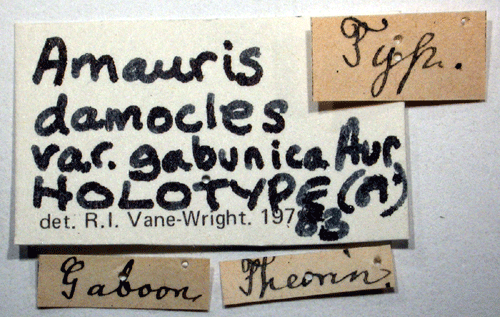 Amauris
damocles
var. gabunica Aur.
HOLOTYPE (♂)
det. R.I. Vane-Wright. 1983
Typ.
Gaboon.
Theorin.